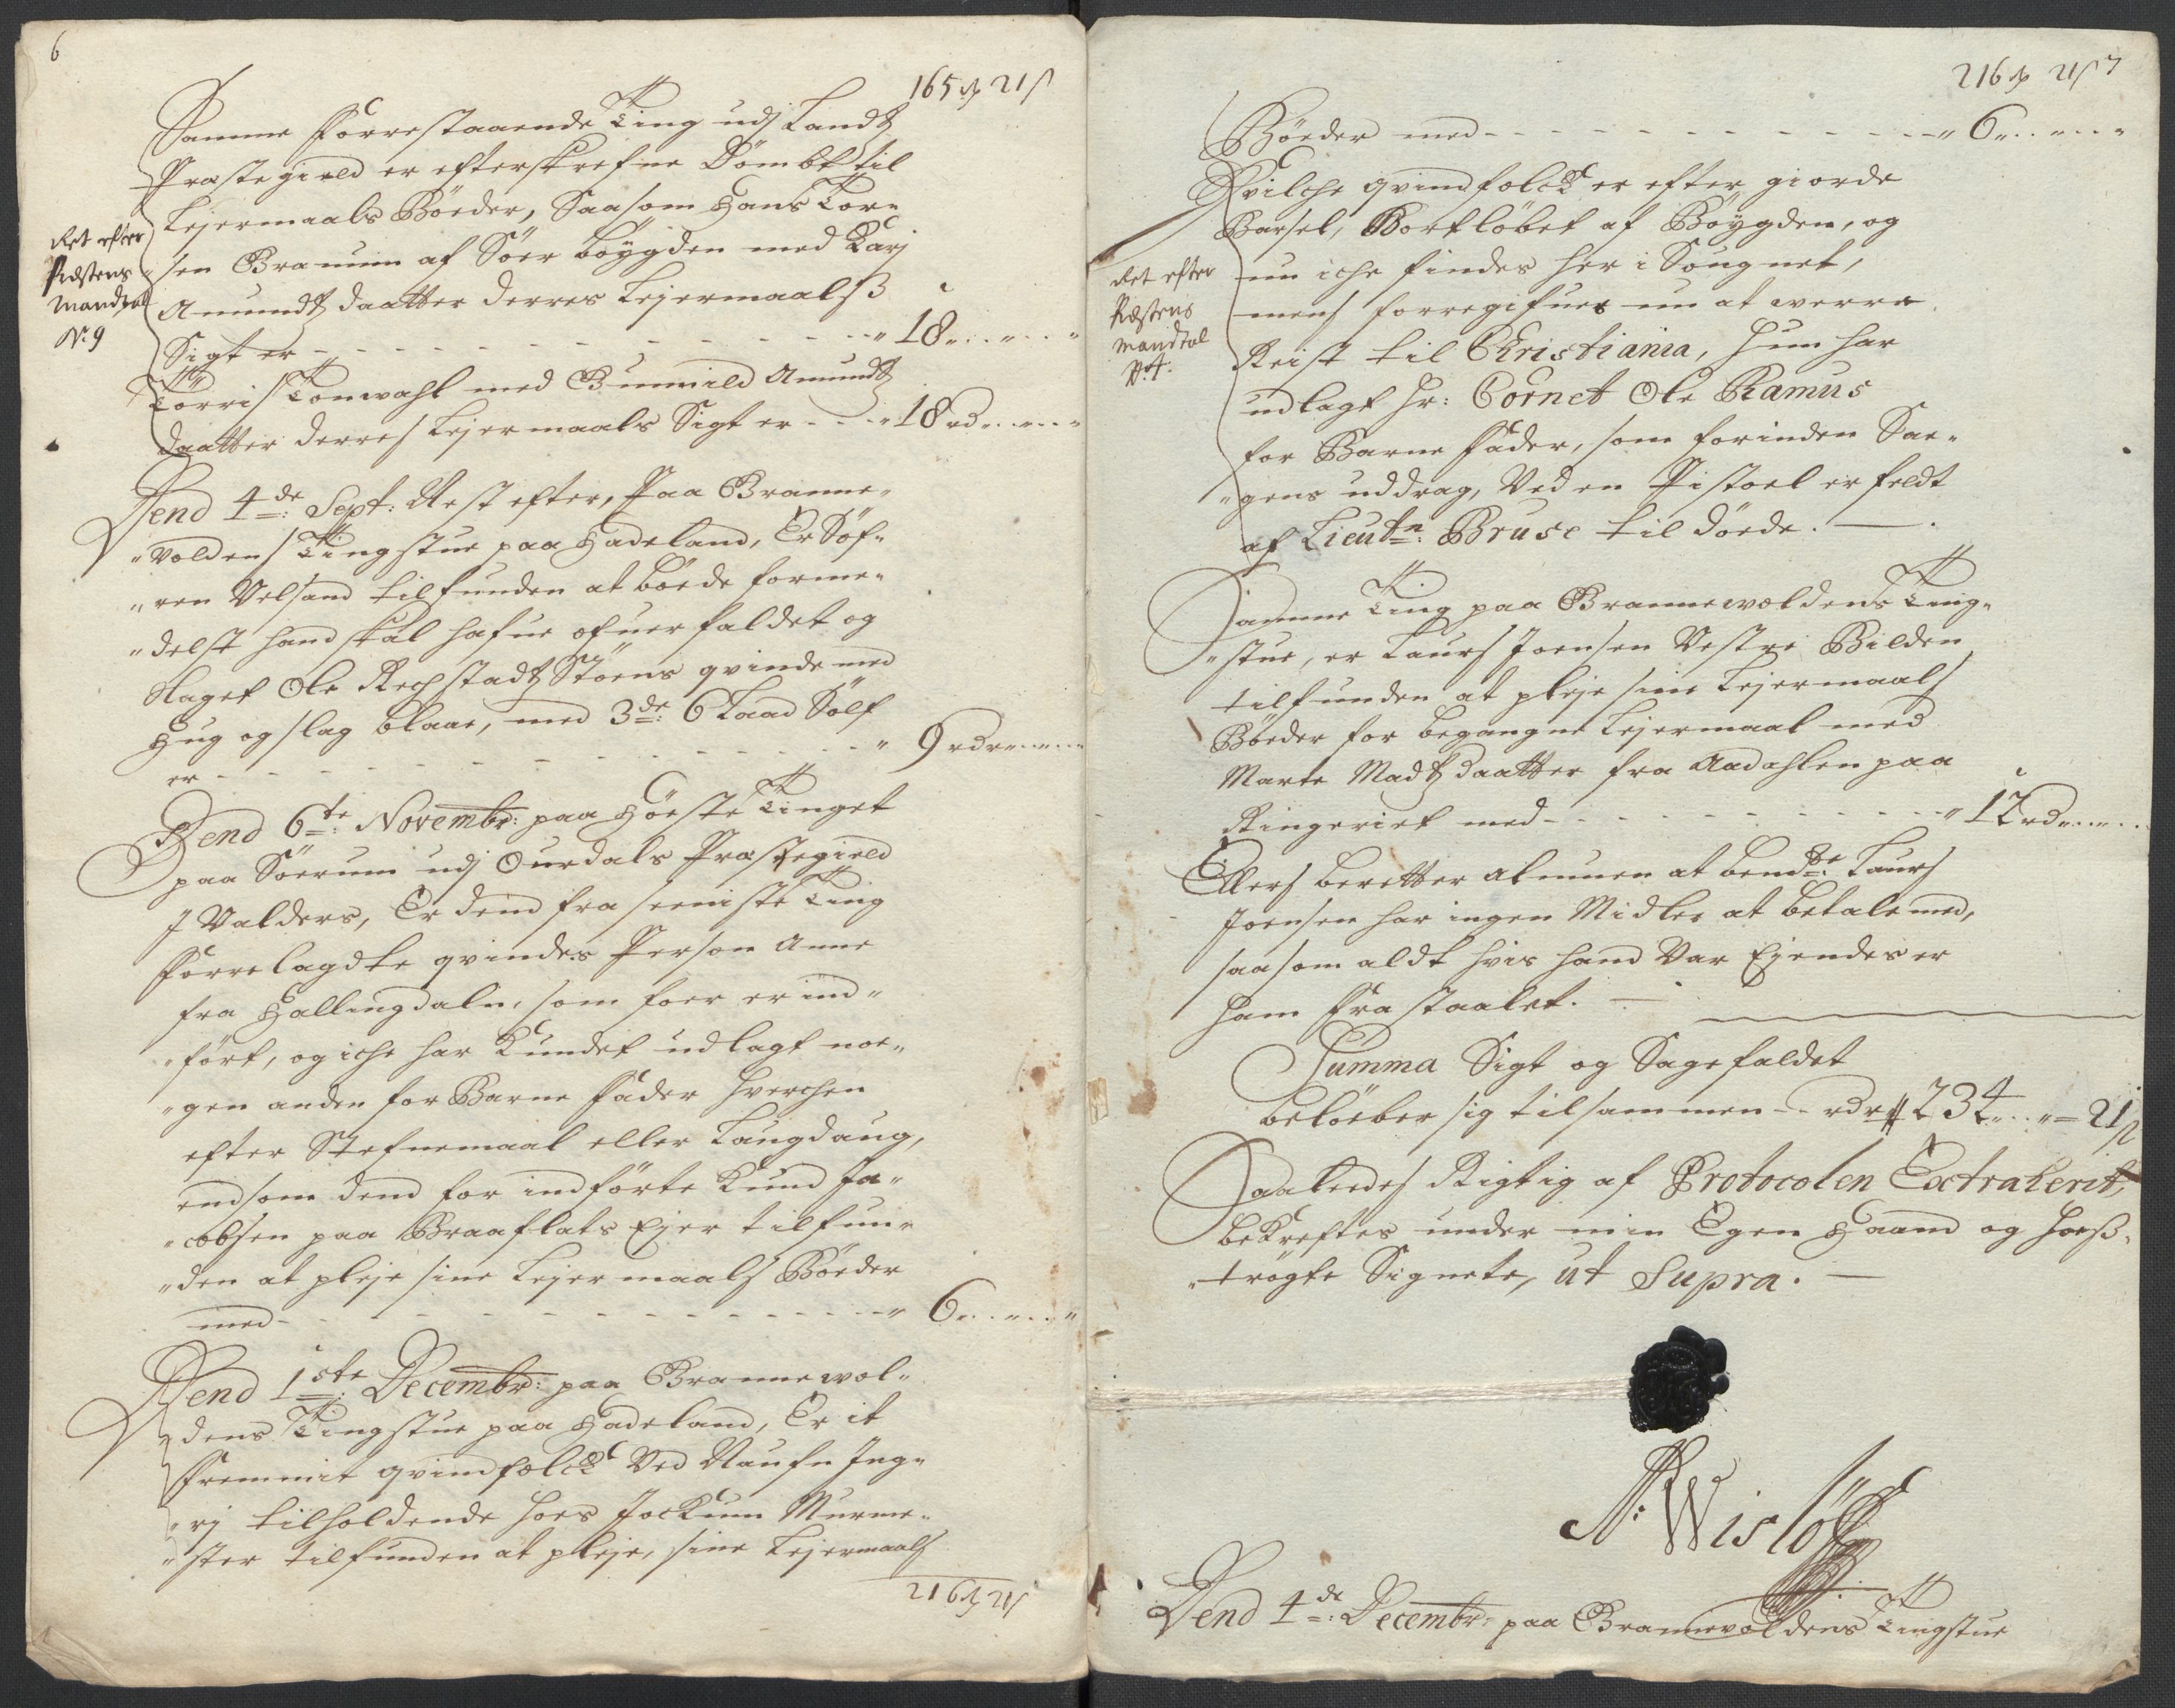 6
165 rdr 21 s
Samme Forrestaaende Ting udj Landtz
Præstegield er efterskrefne Dömbt til
Lejermaals Böeder, Saasom Hans Tor-
sen Braunum af Söer böygden med Karj
Amundtz daatter Derres Lejermaalß
Sigt er - - - 18 - -
Törris Tonwahl med Gunnild Amundtz
daatter derres Lejermaals Sigt er - - - 18 rd - -
Ret efter
Præstens
Mandtal
No: 9
Dend 4de: Sept: Nest efter, Paa Granne-
voldens Tingstue paa Hadeland, Er Söf-
ren Velsand tilfunden at böede forme-
delst hand skal hafue ofuerfaldet og
Slaget Ole Rechstadtz Stöens qvinde med
Hug og slag blaae, med 3de: 6 Laad Sölf
er - - - 9 rdr - -
Dend 6te: Novembr: paa Höeste Tinget
paa Söerum udj Ourdals Præstegield
J Valders, Er dend fra seeniste Ting
Forrelagdte qvindes Person Anne
fra Hallingdaln, som foer er ind-
fört, og iche har Kundet udlagt noe-
gen anden for Barne fader hverchen
efter Stefnemaal eller Laugdaug,
end som dend for indförte Knud Ja-
cobsen paa Braaflats Ejer tilfun-
den at pleje sine Lejermaals Böeder
med - - - 6 - -
Dend 1ste: Decembr: paa Grannevol-
dens Tingstue paa Hadeland, Er it
Fremmit qvindfolck Ved Naufn Ing-
rj tilholdende hoes Jockum Murme-
ster tilfunden at pleje, sine Lejermaals
216 rdr 21 s
216 rdr 21 s 7
Böeder med - - - 6 - -
Hvilche qvindfolck er efter giorde
Barsel, Bortlöbet af Böygden, og
nu iche findes her i Sougnet,
mens forregifues nu at werre
Reist til Christiania, hun har
udlagt Hr: Cornet Ole Ramus
for Barne fader, som forinden Sa-
gens uddrag, Ved en Pistoel er feldt
af Lieutn: Bruse til döede. —
Ret efter
Præstens
mandtal
No. 4:
Samme Ting paa Grannewoldens Ting-
stue, er Laurs Joensen Vestre Bilden
tilfunden at pleje sine Lejermaals
Böeder for begangne Lejermaal med
Marte Madtz daatter fra Aadahlen paa
Ringeriet med - - - 12 rd - -
Ellers beretter almuen at bemte: Laurs
Joensen har ingen Midler at betale med,
saasom aldt hvis hand Var Ejendes er
ham frastaalet. —
Summa Sigt og Sagefaldet
belöeber sig tilsammen - - rdr 234 - - 21 s
Saaleedes Rigtig af Protocolen Extraherit,
bekreftes under min Egen Haand og hoeß-
trögte Signete, ut Supra. —
N: Wislöff
Dend 4de: Decembr: paa Grannevoldens Tingstue